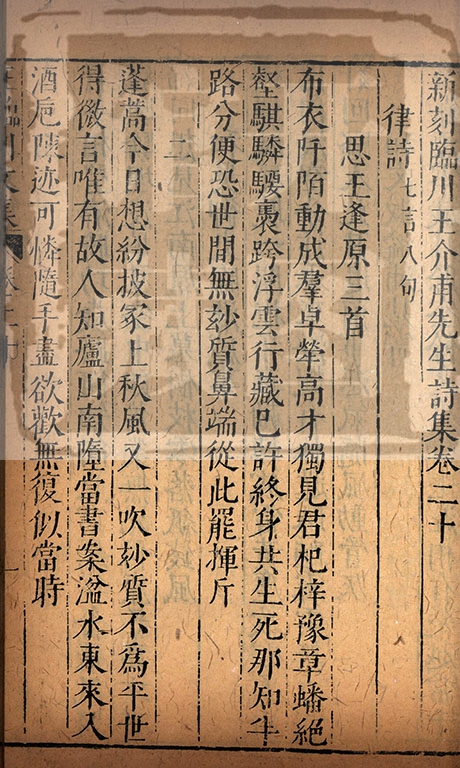 新刻臨川王介甫先生詩集卷二十
律詩 七言八句
思王逢原三首
布衣阡陌動成羣卓犖高才獨見君杞梓豫章蟠絕
壑騏驎騕褭跨浮雲行藏已許終身共生死那知半
路分便恐世間無玅質鼻端從此罷揮斤
二
蓬蒿今日想紛披冢上秋風又一吹玅質不爲平世
得微言唯有故人知廬山南墮當書案湓水東來入
酒巵陳迹可憐隨手盡欲歡無復似當時